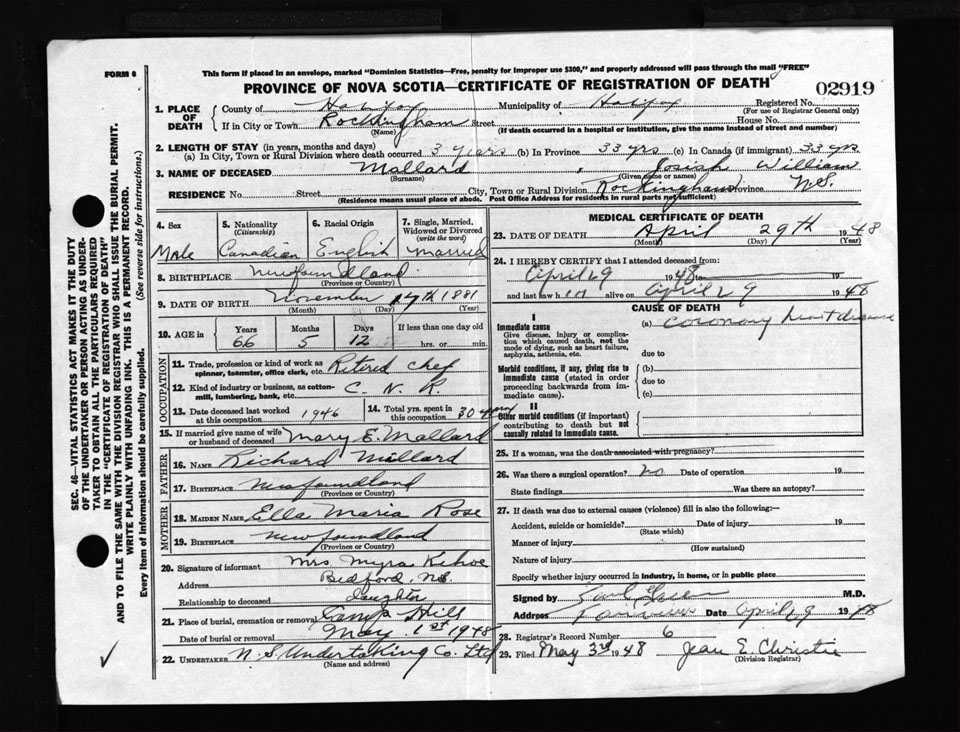 FORM 6
This form if placed in an envelope, marked "Dominion Statistics—Free, penalty for improper use $300," and properly addressed will pass through the mail "FREE"
PROVINCE OF NOVA SCOTIA—CERTIFICATE OF REGISTRATION OF DEATH
02919
1. PLACE OF DEATH
County of Halifax Municipality of Halifax Registered No.
(For use of Registrar General only)
If in City or Town Rockingham Street House No.
(Name) (If death occurred in a hospital or institution, give the name instead of street and number)
2. LENGTH OF STAY (in years, months and days)
(a) In City, Town or Rural Division where death occurred 3 years (b) In Province 33 yrs (c) In Canada (if immigrant) 33 yrs
3. NAME OF DECEASED Mallard, Josiah William
(Surname) (Given name or names)
RESIDENCE No. Street City, Town or Rural Division Rockingham Province N.S.
(Residence means usual place of abode. Post Office Address for residents in rural parts not sufficient)
4. Sex
Male
5. Nationality
(Citizenship)
Canadian
6. Racial Origin
English
7. Single, Married, Widowed or Divorced
(write the word)
Married
8. BIRTHPLACE Newfoundland
(Province or Country)
9. DATE OF BIRTH November 17th 1881
(Month) (Day) (Year)
10. AGE in
Years Months Days If less than one day old
66 5 12 hrs. or min.
OCCUPATION
11. Trade, profession or kind of work as spinner, teamster, office clerk, etc. Retired chef
12. Kind of industry or business, as cotten-mill, lumbering, bank, etc. C. N. R.
13. Date deceased last worked at this occupation 1946
14. Total yrs. spent in this occupation 30 years
15. If married give name of wife or husband of deceased Mary E. Mallard
FATHER
16. NAME Richard Mallard
17. BIRTHPLACE Newfoundland
(Province or Country)
MOTHER
18. MAIDEN NAME Ella Maria Rose
19. BIRTHPLACE Newfoundland
(Province or Country)
20. Signature of informant Mrs. Myra Kehoe
Address Bedford, N.S.
Relationship to deceased daughter
21. Place of burial, cremation or removal Camp Hill
Date of burial or removal May 1st 1948
22. UNDERTAKER N. S. Undertaking Co. Ltd
(Name and address)
MEDICAL CERTIFICATE OF DEATH
23. DATE OF DEATH April 29th 1948
(Month) (Day) (Year)
24. I HEREBY CERTIFY that I attended deceased from:
April 29 1948 to 19
and last saw him alive on April 29 1948
CAUSE OF DEATH
I
Immediate cause
Give disease, injury or complication which caused death, not the mode of dying, such as heart failure, asphyxia, asthenia, etc.
(a) Coronary heart disease
due to
Morbid conditions, if any, giving rise to immediate cause (stated in order proceeding backwards from immediate cause).
(b)
due to
(c)
II
Other morbid conditions (if important) contributing to death but not causally related to immediate cause.
25. If a woman, was the death associated with pregnancy?
26. Was there a surgical operation? no Date of operation 19
State findings Was there an autopsy?
27. If death was due to external causes (violence) fill in also the following:—
Accident, suicide or homicide? Date of injury 19
(State which)
Manner of injury
(How sustained)
Nature of injury
Specify whether injury occurred in industry, in home, or in public place
Signed by M.D.
Address Fairview Date April 29 1948
28. Registrar's Record Number 6
29. Filed May 3rd 1948 Jean E. Christie
(Division Registrar)
SEC. 46—VITAL STATISTICS ACT MAKES IT THE DUTY
OF THE UNDERTAKER OR PERSON ACTING AS UNDER-
TAKER TO OBTAIN ALL THE PARTICULARS REQUIRED
IN THE "CERTIFICATE OF REGISTRATION OF DEATH"
AND TO FILE THE SAME WITH THE DIVISION REGISTRAR WHO SHALL ISSUE THE BURIAL PERMIT.
WRITE PLAINLY WITH UNFADING INK. THIS IS A PERMANENT RECORD.
Every item of information should be carefully supplied. (See reverse side for instructions.)